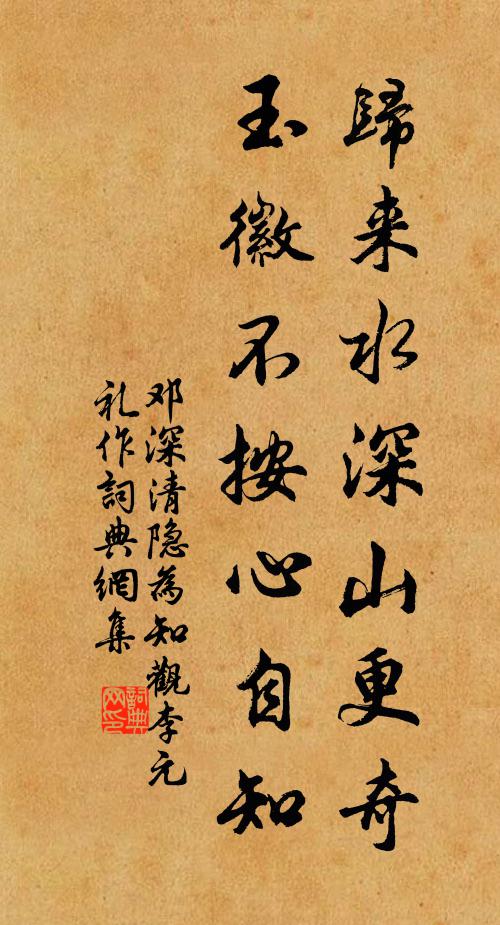 歸来水深山更奇
玉徽不按心自知
邓深清隐為知觀李元
礼作詞典網集
詞典網印